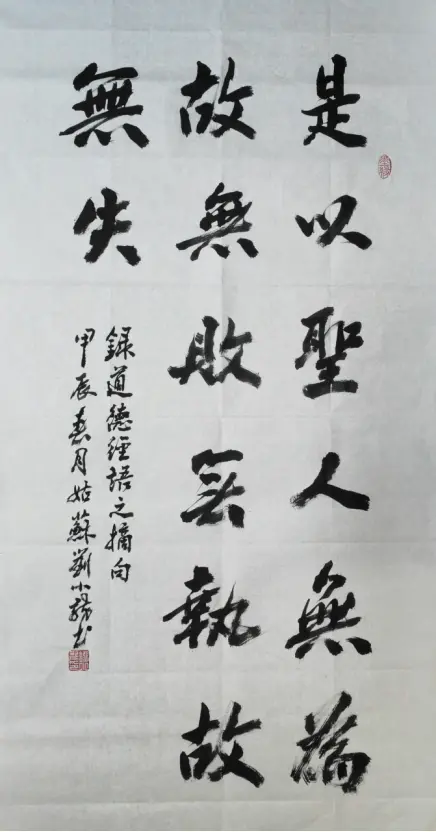 是以聖人無為
故無敗無執故
無失
錄道德經語之摘句
甲辰春月姑蘇劉小楊書